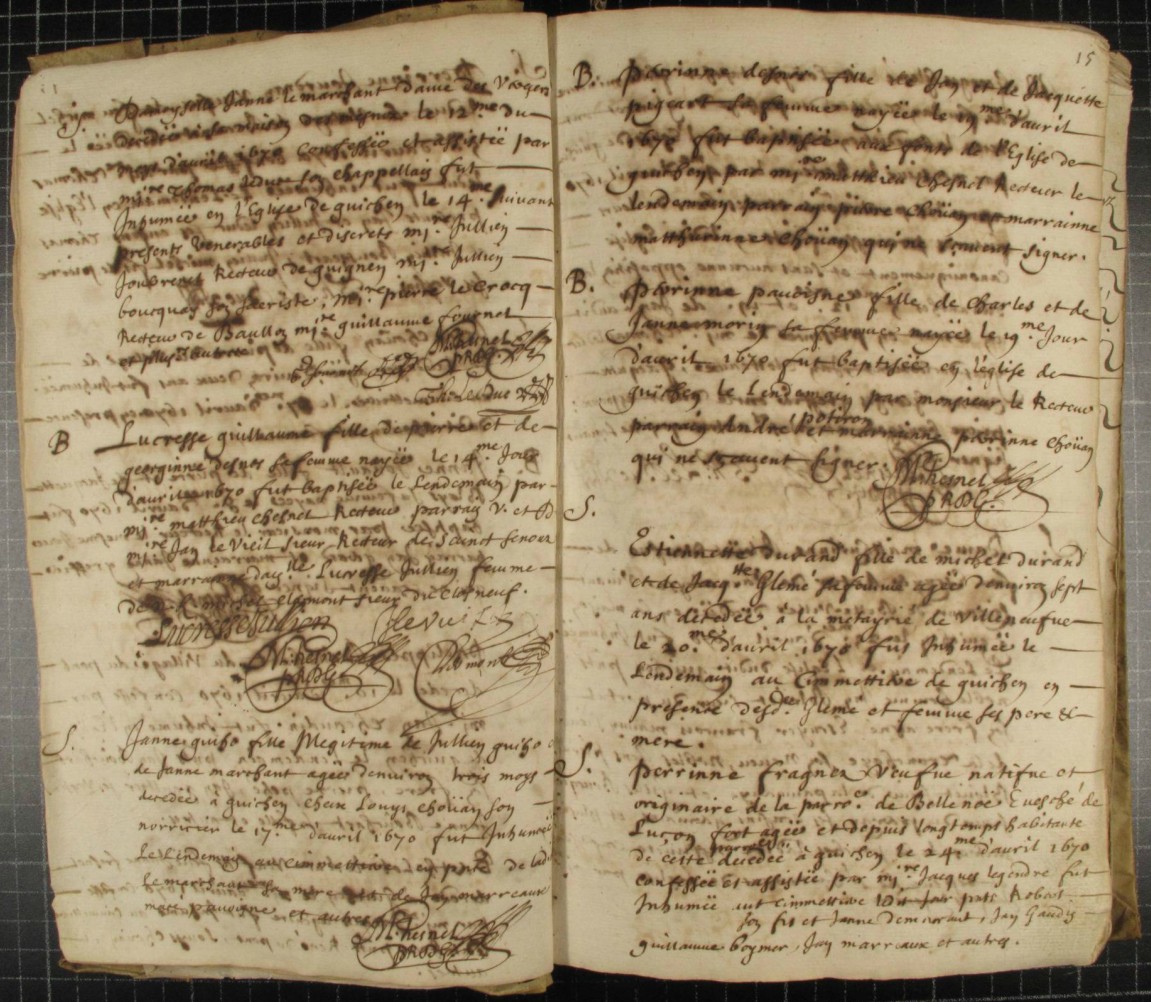 Damoyselle Janne le marchant dame des
decedée le 12.me du
mois d'auril 1670 confessée et assistée par
mi.re Thomas Leduc son chappellain fut
Inhumée en l'Eglise de guichen le 14.me suivant
presents venerables et discrets mi.re Jullien
Joubrenet Recteur de guignen mi.re Jullien
boucquay mi.re pierre le Crocq
Recteur de Baullon mi.re guillaume fournel
et plusieurs autres
M. Chesnel
PRDG.
Th. Leduc
B
Lucresse guillaume fille de pierre et de
georginne desnos sa femme nayée le 14.me Jour
d'auril 1670 fut baptisée le Lendemain par
mi.re matthieu Chesnel Recteur parrain V. et D
mi.re Jan le Vieil sieur Recteur de Sainct senoux
et marrainne dam.lle Lucresse Jullien femme
de Clermont sieur du Closneuf.
Lucresse Jullien
le Vieil
M. Chesnel
PRDG.
S.
Janne guiho fille Illegitime de Jullien guiho
de Janne marchant agée d'enuiron trois moys
decedée à guichen cheux Louys choüan son
norricier le 17.me d'auril 1670 fut Inhumée
Le Lendemain au cimmettiere en pnce de lad
Le marchant sa mere et de Jan marreaux
et autres
M. Chesnel
PRDG.
15
B.
perrinne desnos fille de Jan et de Jacquette
pigeart sa femme nayée le 19.me d'auril
1670 fut baptisée aux fonts de l'Eglise de
guichen par mi.re matthieu Chesnel Recteur le
lendemain parrain pierre choüan et marrainne
matthurinne choüan qui ne sçauent signer.
B.
perrinne pauoisne fille de Charles et de
Janne morin sa femme nayée le 19.me Jour
d'auril 1670 fut baptisée en l'église de
guichen le Lendemain par monsieur le Recteur
parrain André potiron et marrainne perrinne choüan
qui ne sçauent signer.
M. Chesnel
PRDG.
S.
Estiennette durand fille de michel durand
et de Jacq.tte Gleme sa femme agée d'enuiron sept
ans decedée à la metayrie de Villeneufue
le 20.me d'auril 1670 fut Inhumée le
Lendemain au Cimmettiere de guichen en
presence desd. Gleme et femme ses pere &
mere.
S.
perrinne fragner veufue natifue et
originaire de la parro.e de Bellenoe Euesché de
Luçon fort agée et depuis longtemps habitante
de ceste decedée à guichen le 24.me d'auril 1670
confessée et assistée par mi.re Jacques legendre fut
Inhumée aut cimmettiere led. jour pnts Robert
son fis et Janne Demarant, Jan Gaudin
guillaume boymer, Jan marreaux et autres.